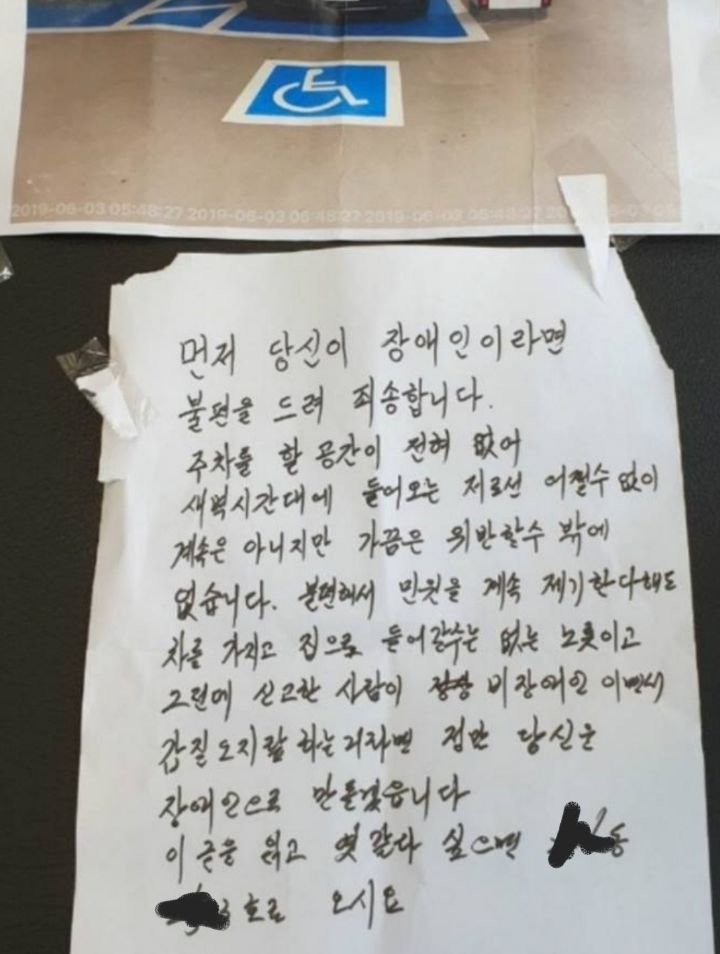 2019-06-03 05:48:27 2019-06-03 05:48:27 2019-06-03 05:48:27
먼저 당신이 장애인이라면
불편을 드려 죄송합니다.
주차를 할 공간이 전혀 없어
새벽시간대에 들어오는 저로선 어쩔수 없이
계속은 아니지만 가끔은 위반할수 밖에
없습니다. 불편해서 민원을 계속 제기한다해도
차를 가지고 집으로 들어갈수는 없는 노릇이고
그런데 신고한 사람이 비장애인 이면서
갑질 오지랖 하는거라면 정말 당신은
장애인으로 만들겠습니다
이 글을 읽고 엿 같다 싶으면 동
3호로 오시요